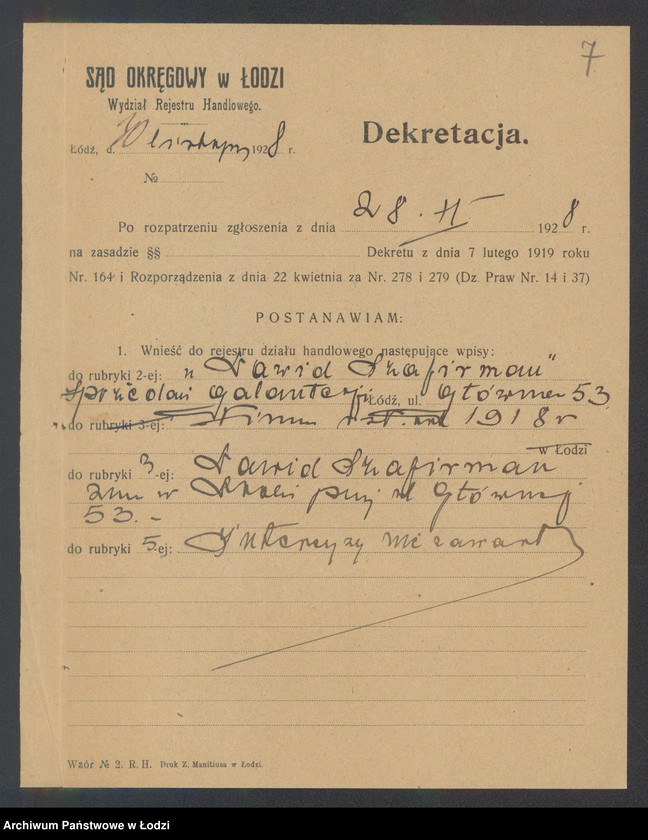 7
SĄD OKRĘGOWY w ŁODZI
Wydział Rejestru Handlowego.
Dekretacja.
Łódź, d. 1928 r.
№
Po rozpatrzeniu zgłoszenia z dnia 28. II 1928 r.
na zasadzie §§ Dekretu z dnia 7 lutego 1919 roku
Nr. 164 i Rozporządzenia z dnia 22 kwietnia za Nr. 278 i 279 (Dz. Praw Nr. 14 i 37)
POSTANAWIAM:
1. Wnieść do rejestru działu handlowego następujące wpisy:
do rubryki 2-ej: „Dawid Szafirman"
galanterji Łódź, ul. Główna 53
do rubryki 3-ej: 1918 r
w Łodzi
do rubryki 3-ej: Dawid Szafirman
zam w przy ul Głównej
53.-
do rubryki 5-ej: Intercyzy nie zawarł
Wzór № 2. R. H. Druk Z. Manitiusa w Łodzi.
Archiwum Państwowe w Łodzi